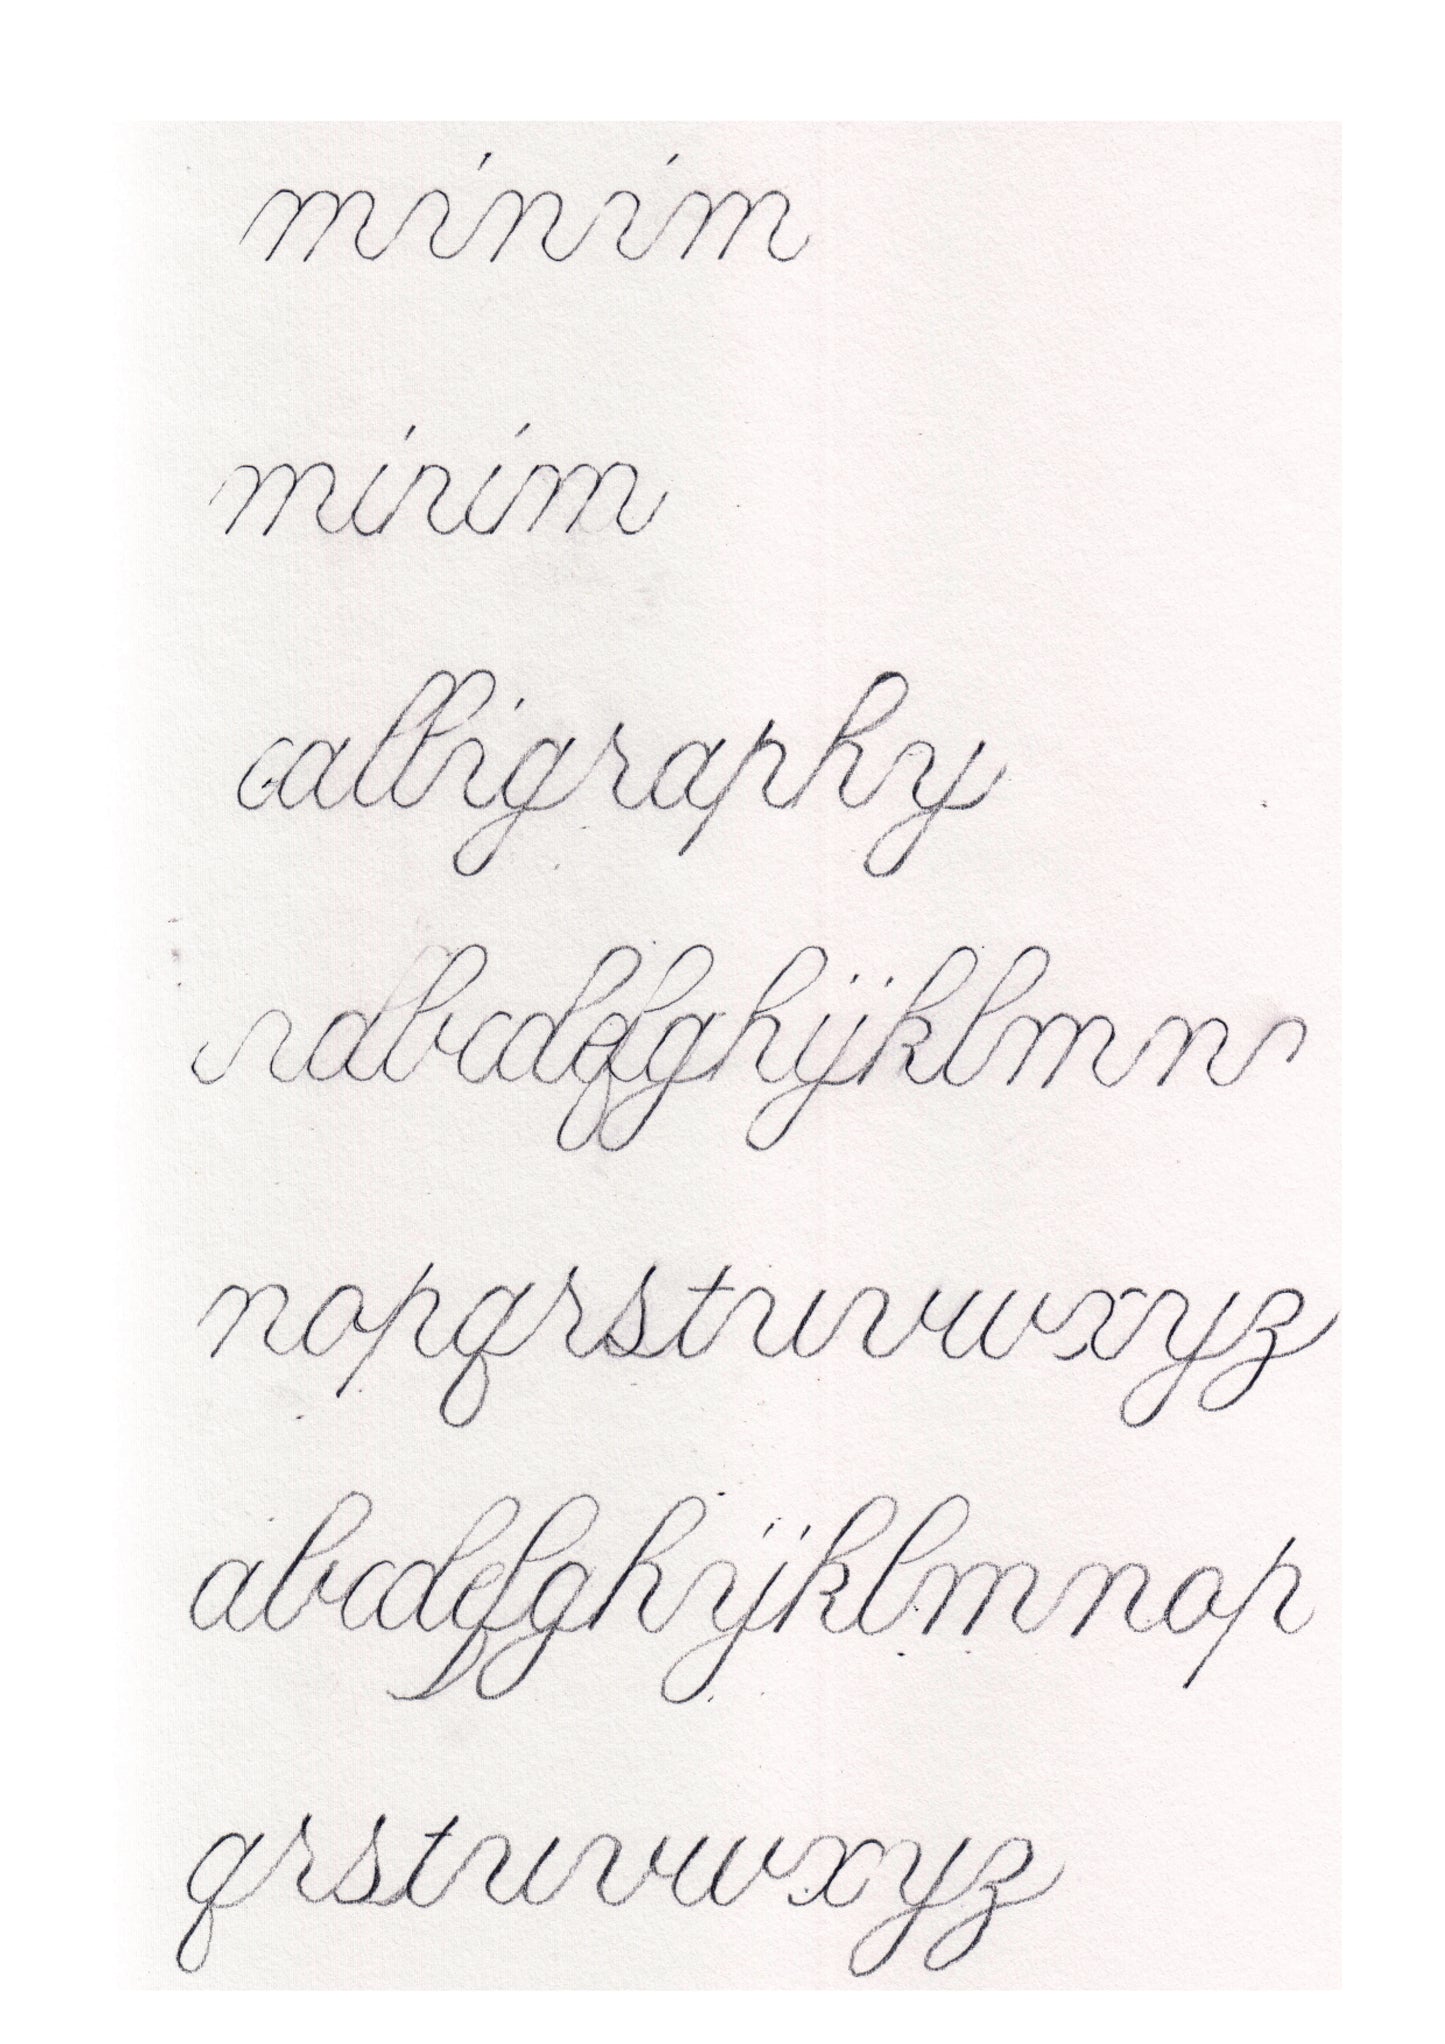 minim
minim
calligraphy
abcdefghijklmn
nopqrstuvwxyz
abcdefghijklmnop
qrstuvwxyz